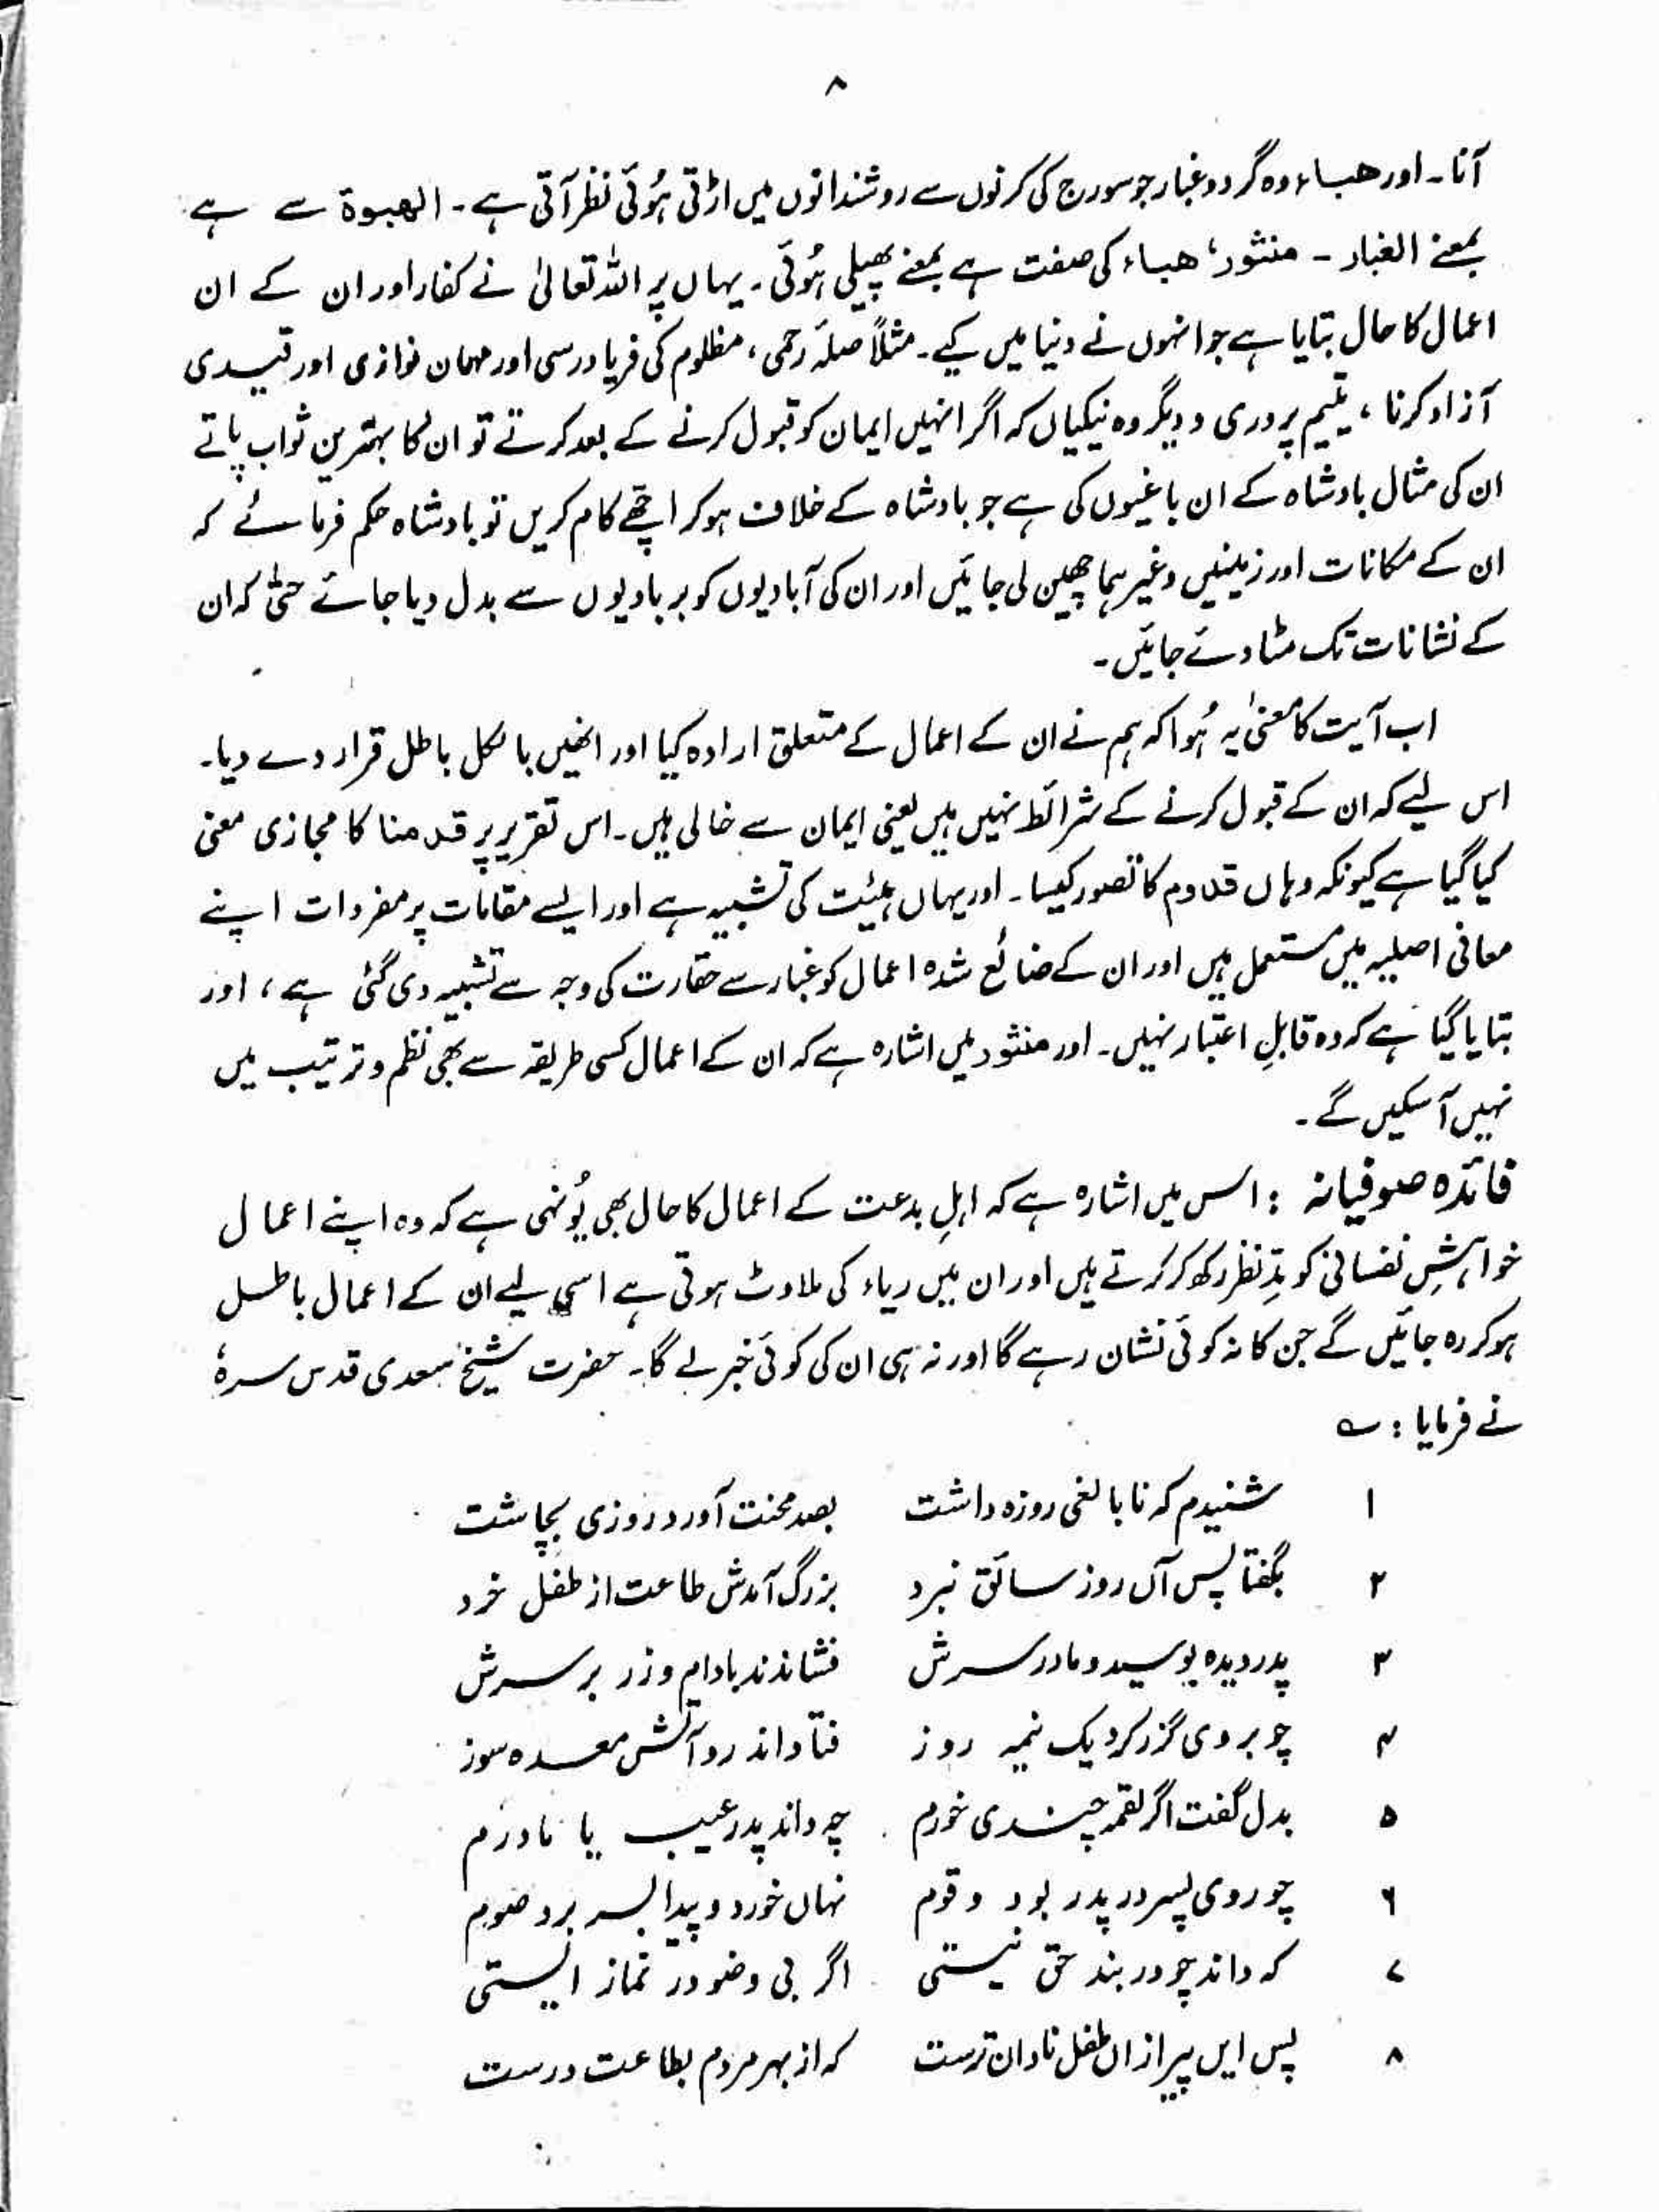 ۸
آنا۔ اور ھباء وہ گرد و غبار جو سورج کی کرنوں سے روشندانوں میں اڑتی ہُوئی نظر آتی ہے۔ الھبوۃ سے ہے
بمعنے الغبار۔ منثور، ھباء کی صفت ہے بمعنے پھیلی ہُوئی۔ یہاں پر اللہ تعالیٰ نے کفار اور ان کے ان
اعمال کا حال بتایا ہے جو انہوں نے دنیا میں کیے۔ مثلاً صلۂ رحمی، مظلوم کی فریاد رسی اور مہمان نوازی اور قیدی
آزاد کرنا، یتیم پروری و دیگر وہ نیکیاں کہ اگر انہیں ایمان کو قبول کرنے کے بعد کرتے تو ان کا بہترین ثواب پاتے
ان کی مثال بادشاہ کے ان باغیوں کی ہے جو بادشاہ کے خلاف ہو کر اچھے کام کریں تو بادشاہ حکم فرمائے کہ
ان کے مکانات اور زمینیں وغیرہما چھین لی جائیں اور ان کی آبادیوں کو بربادیوں سے بدل دیا جائے حتّٰی کہ ان
کے نشانات تک مٹا دئے جائیں۔
اب آیت کا معنیٰ یہ ہُوا کہ ہم نے ان کے اعمال کے متعلق ارادہ کیا اور انھیں بالکل باطل قرار دے دیا۔
اس لیے کہ ان کے قبول کرنے کے شرائط نہیں ہیں یعنی ایمان سے خالی ہیں۔ اس تقریر پر قدمنا کا مجازی معنی
کیا گیا ہے کیونکہ وہاں قدوم کا تصور کیسا۔ اور یہاں ہیئت کی تشبیہ ہے اور ایسے مقامات پر مفردات اپنے
معانی اصلیہ میں مستعمل ہیں اور ان کے ضائع شدہ اعمال کو غبار سے حقارت کی وجہ سے تشبیہ دی گئی ہے، اور
بتایا گیا ہے کہ وہ قابلِ اعتبار نہیں۔ اور منثور میں اشارہ ہے کہ ان کے اعمال کسی طریقہ سے بھی نظم و ترتیب میں
نہیں آسکیں گے۔
فائدہ صوفیانہ : اس میں اشارہ ہے کہ اہلِ بدعت کے اعمال کا حال بھی یُونہی ہے کہ وہ اپنے اعمال
خواہشِ نفسانی کو مدِّ نظر رکھ کر کرتے ہیں اور ان میں ریاء کی ملاوٹ ہوتی ہے اسی لیے ان کے اعمال باطل
ہو کر رہ جائیں گے جن کا نہ کوئی نشان رہے گا اور نہ ہی ان کی کوئی خبر لے گا۔ حضرت شیخ سعدی قدس سرہٗ
نے فرمایا : ؎
۱ شنیدم کہ نابالغی روزہ داشت بصد محنت آورد روزی بچاشت
۲ بگفتا پس آں روز سائق نبرد بزرگ آمدش طاعت از طفل خرد
۳ پدر دیدہ بوسید و مادر سرش فشاندند بادام و زر بر سرش
۴ چو بروی گزر کرد یک نیمہ روز فتاد اندرو آتش معدہ سوز
۵ بدل گفت اگر لقمہ چندی خورم چہ داند پدر عیب یا مادرم
۶ چو روی پسر در پدر بود و قوم نہاں خورد و پیدا بسر برد صوم
۷ کہ داند چو در بند حق نیستی اگر بی وضو در نماز ایستی
۸ پس ایں پیر ازاں طفل نادان ترست کہ از بہر مردم بطاعت درست